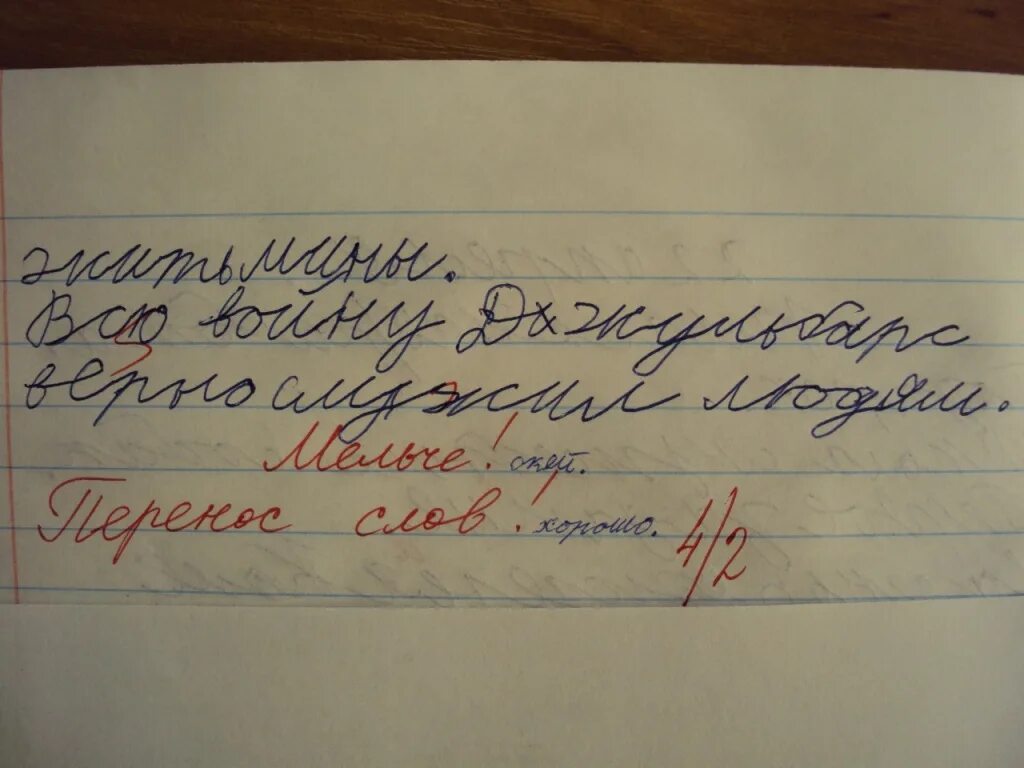 жить мины.
Всю войну Джульбарс
верно служил людям.
Мельче! окей.
Перенос слов! хорошо. 4/2